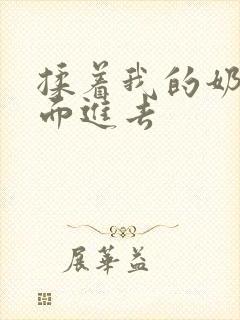 揉着我的奶
而进去
展华益